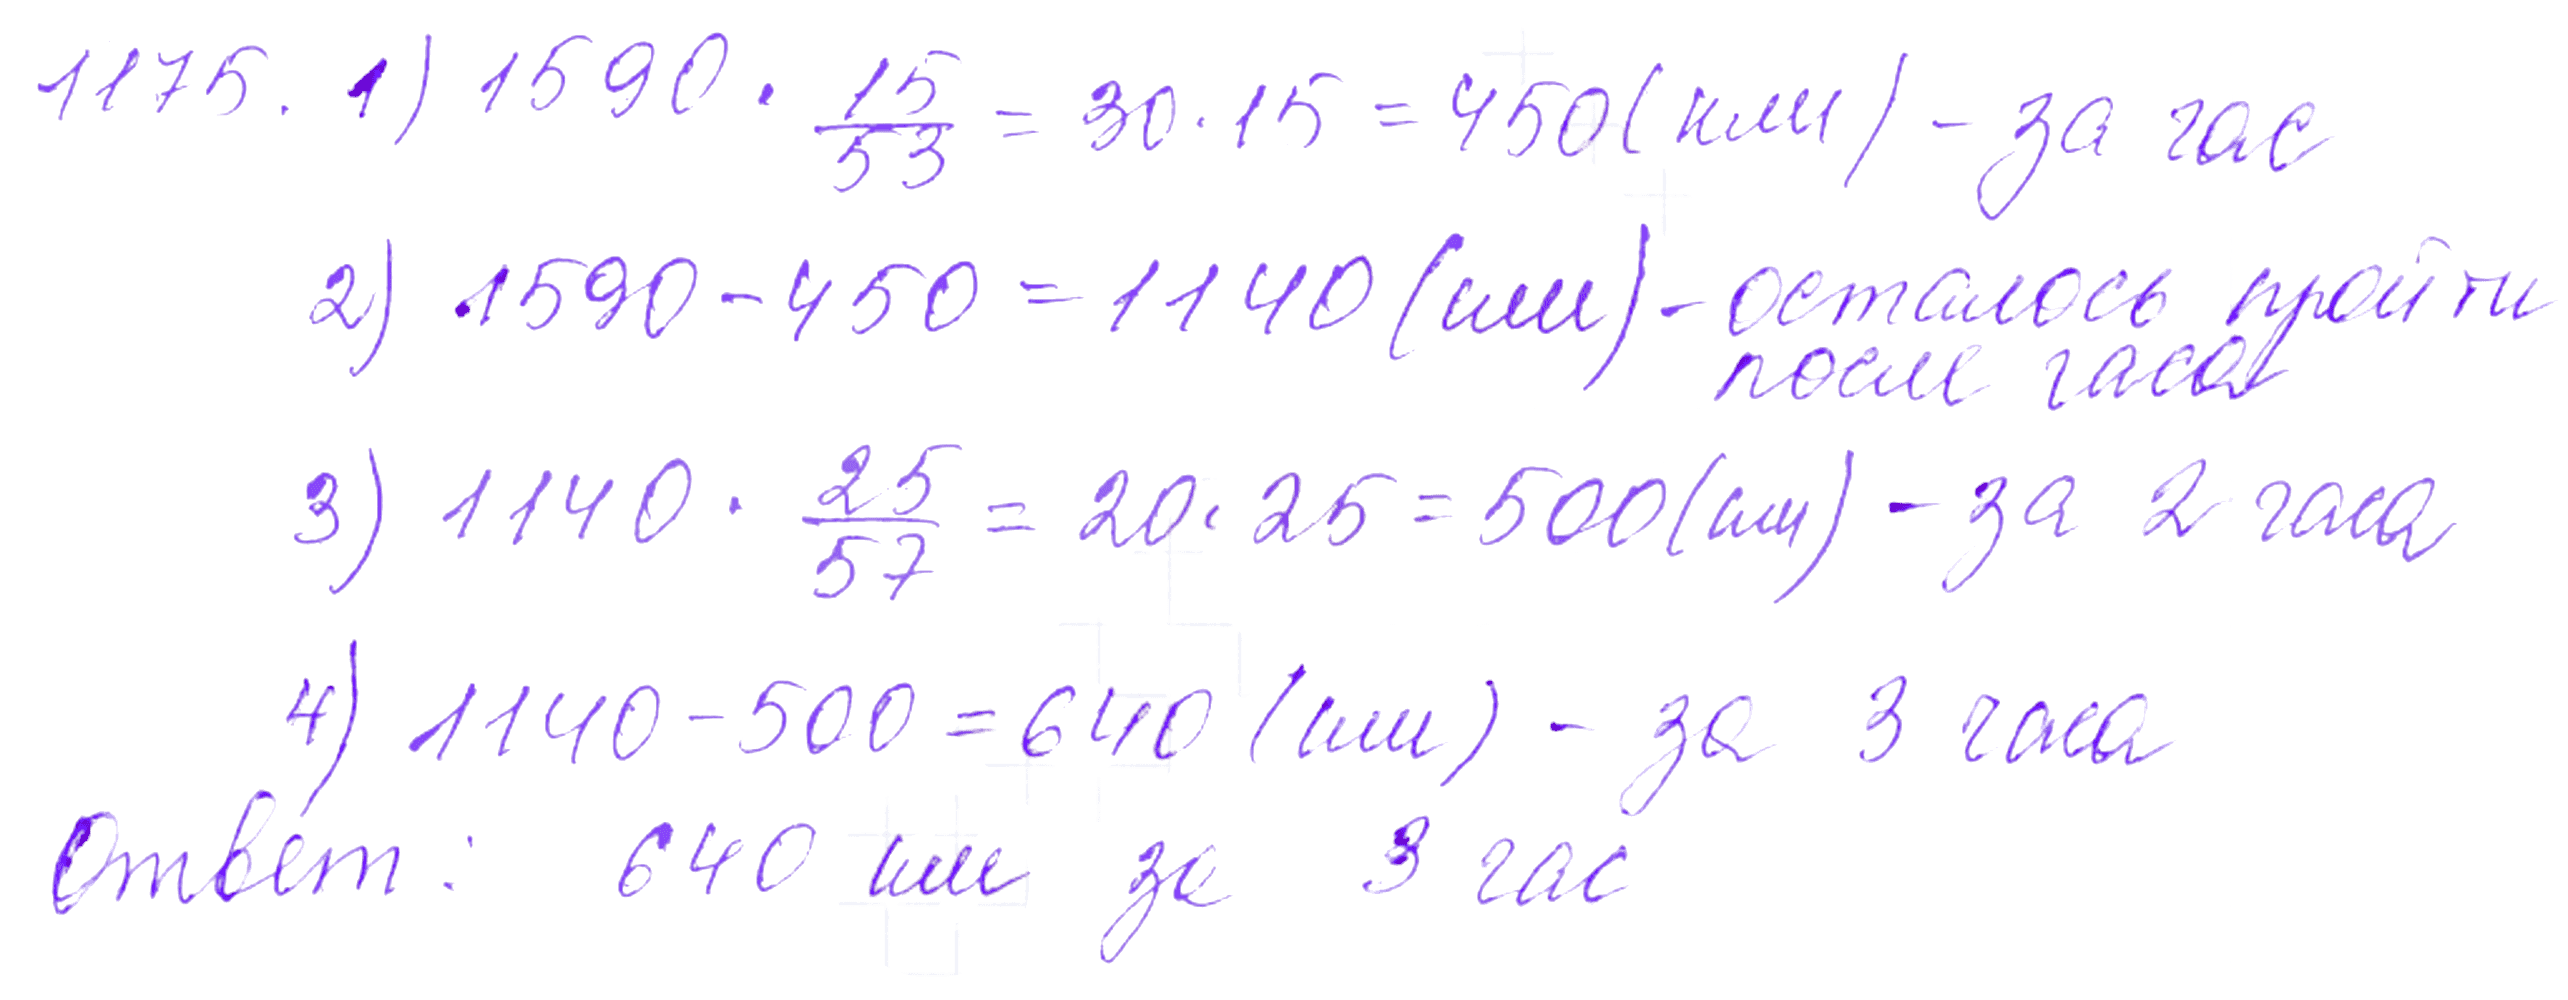 1175. 1) 1590 · 15/53 = 30 · 15 = 450 (км) - за час
2) 1590 - 450 = 1140 (км) - осталось пройти
после часа
3) 1140 · 25/57 = 20 · 25 = 500 (км) - за 2 часа
4) 1140 - 500 = 640 (км) - за 3 часа
Ответ: 640 км за 3 час